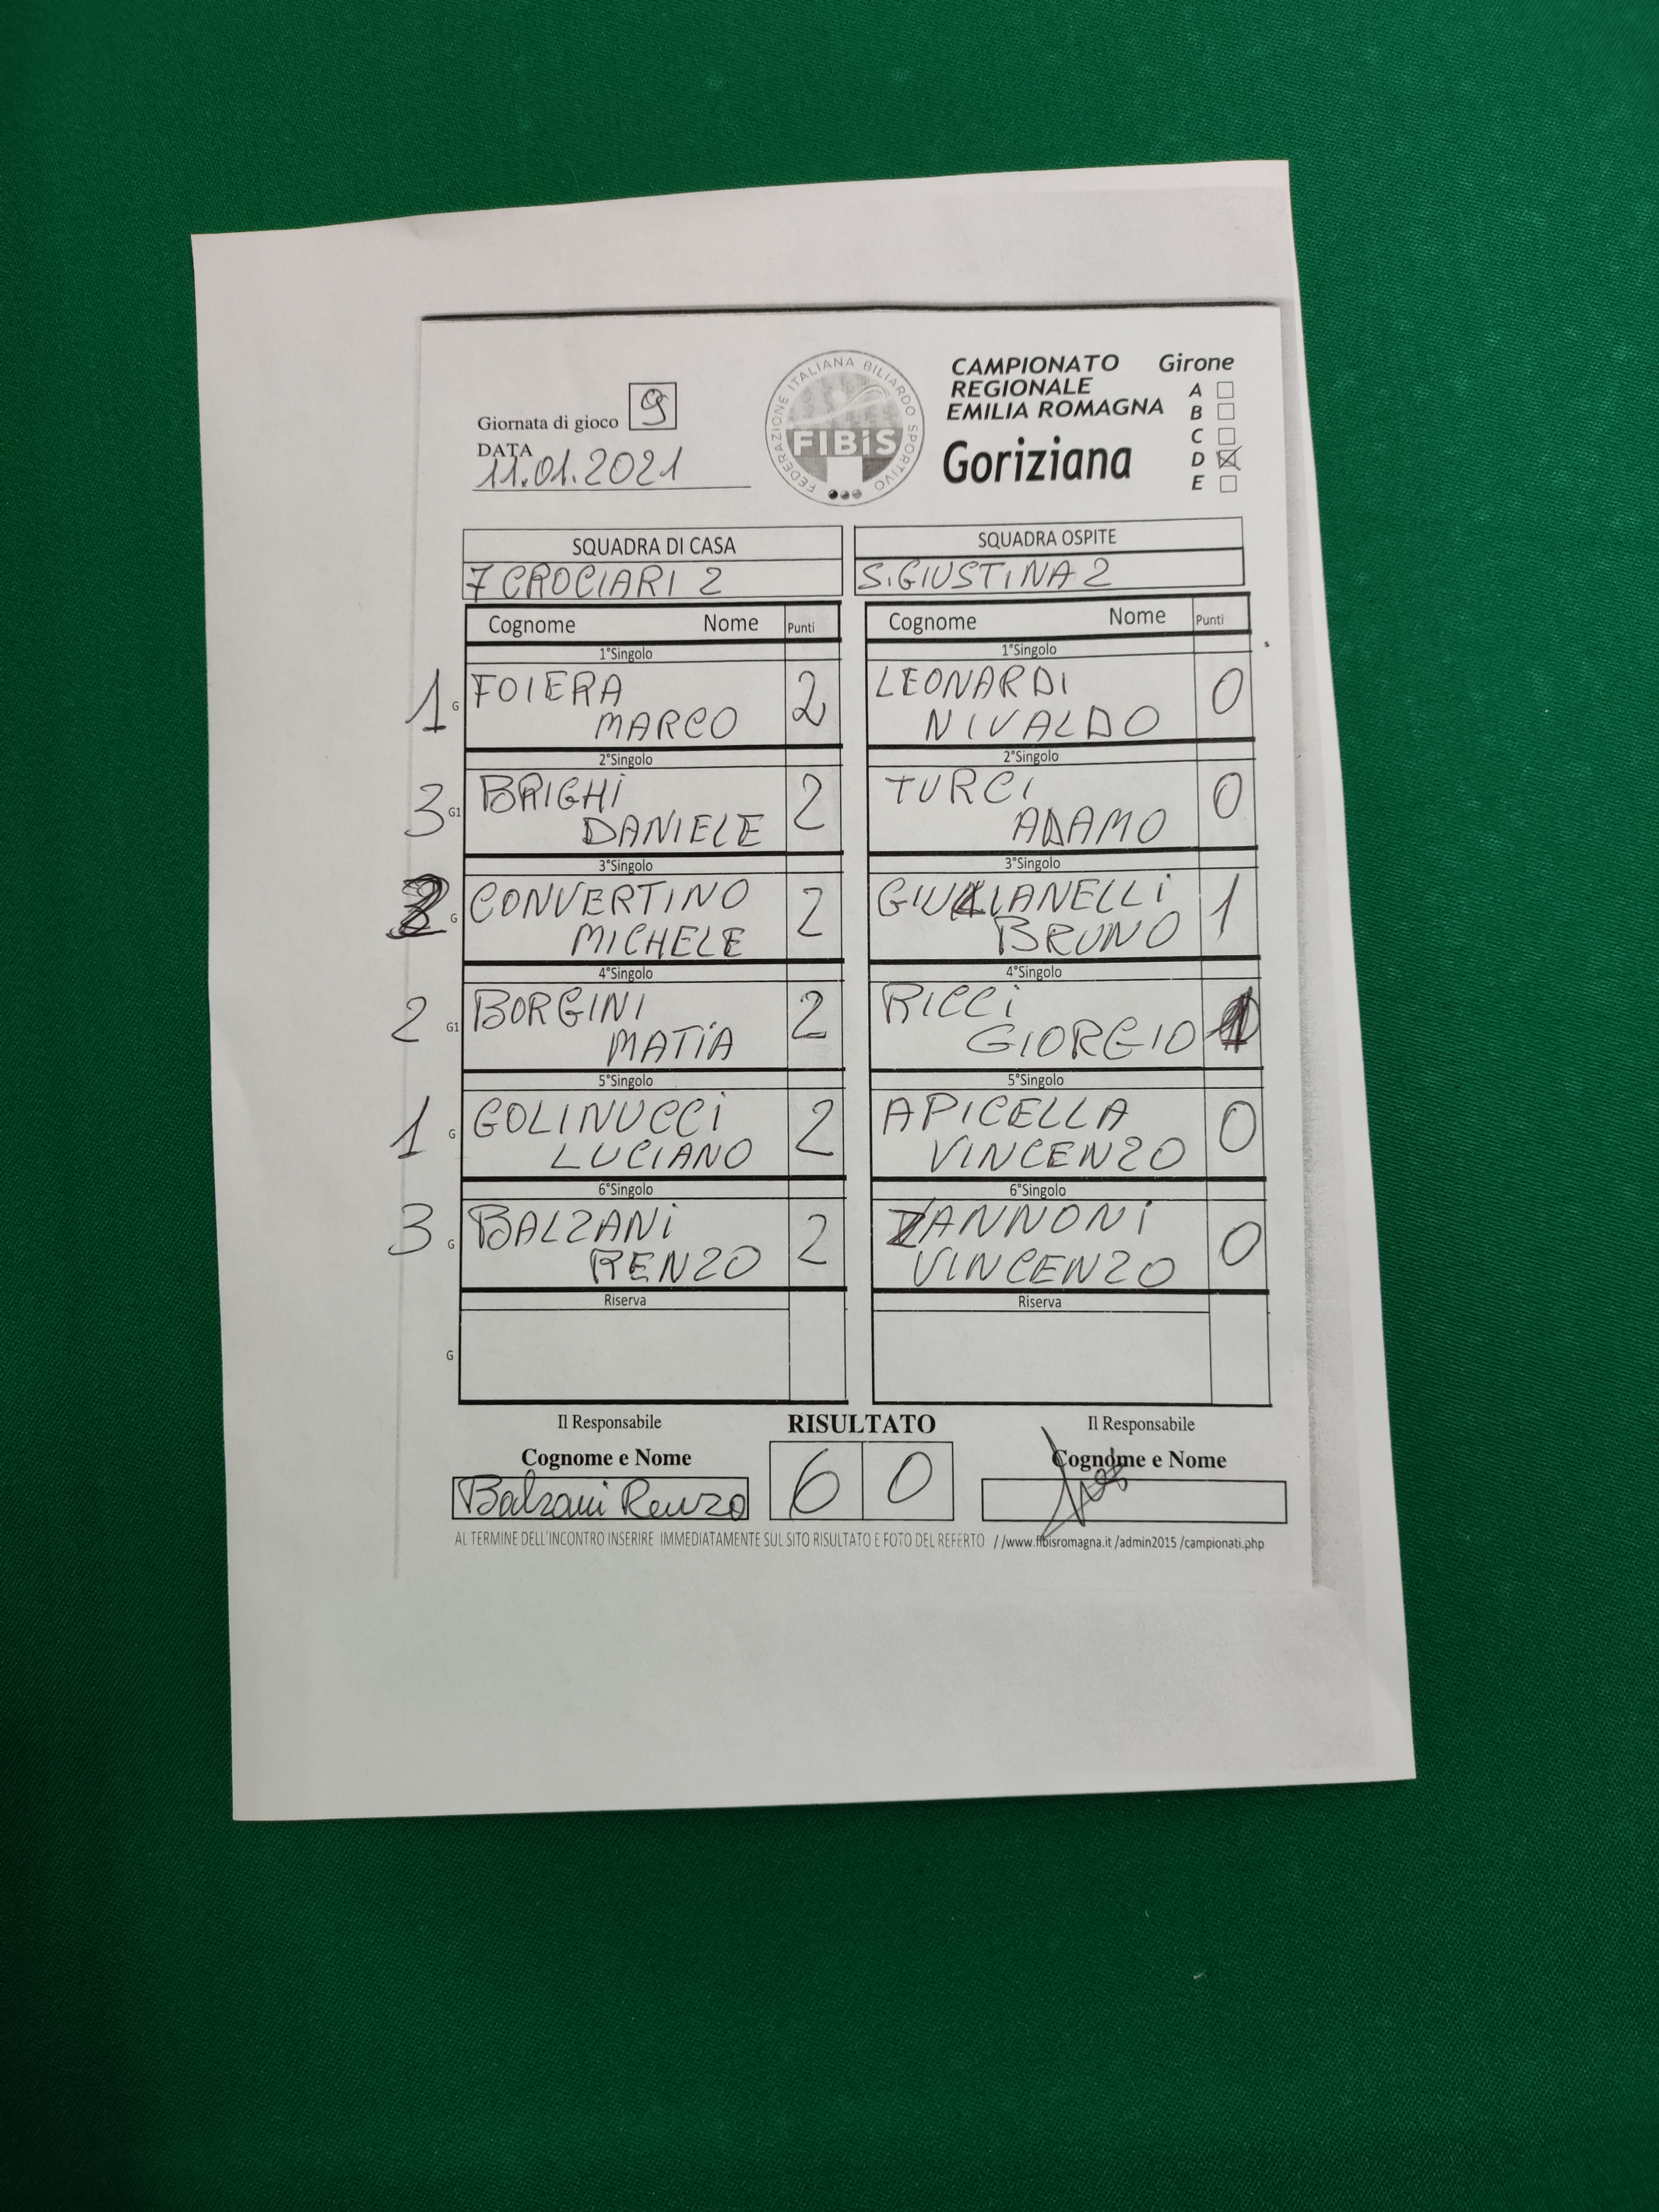 CAMPIONATO Girone
REGIONALE
EMILIA ROMAGNA
A
B
C
D
E
Goriziana
FEDERAZIONE ITALIANA BILIARDO SPORTIVO
FIBiS
Giornata di gioco 9
DATA
11.01.2021
SQUADRA DI CASA
7 CROCIARI 2
SQUADRA OSPITE
S.GIUSTINA 2
Cognome Nome Punti
Cognome Nome Punti
1°Singolo
1 G FOIERA 2
MARCO
1°Singolo
LEONARDI 0
NIVALDO
2°Singolo
3 G1 BRIGHI 2
DANIELE
2°Singolo
TURCI 0
ADAMO
3°Singolo
G CONVERTINO 2
MICHELE
3°Singolo
GIULIANELLI 1
BRUNO
4°Singolo
2 G1 BORGINI 2
MATIA
4°Singolo
RICCI
GIORGIO 1
5°Singolo
1 G GOLINUCCI 2
LUCIANO
5°Singolo
APICELLA 0
VINCENZO
6°Singolo
3 G BALZANI 2
RENZO
6°Singolo
ZANNONI 0
VINCENZO
Riserva
G
Riserva
Il Responsabile
Cognome e Nome
Balzani Renzo
RISULTATO
6 0
Il Responsabile
Cognome e Nome
AL TERMINE DELL'INCONTRO INSERIRE IMMEDIATAMENTE SUL SITO RISULTATO E FOTO DEL REFERTO //www.fibisromagna.it /admin2015 /campionati.php